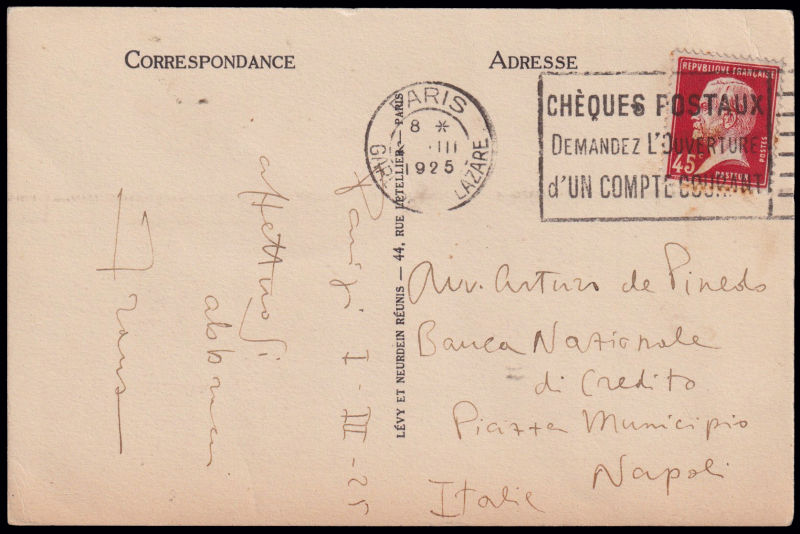 CORRESPONDANCE
ADRESSE
REPUBLIQUE FRANÇAISE
45c
POSTES
PASTEUR
PARIS
8 *
III
1925
GARE LAZARE
CHÈQUES POSTAUX
DEMANDEZ L'OUVERTURE
d'UN COMPTE COURANT
LÉVY ET NEURDEIN RÉUNIS — 44, RUE LETELLIER — PARIS
Parigi I - III - 25
affettuosi
abbracci
Avv. Arturo de Pinedo
Banca Nazionale
di Credito
Piazza Municipio
Napoli
Italie